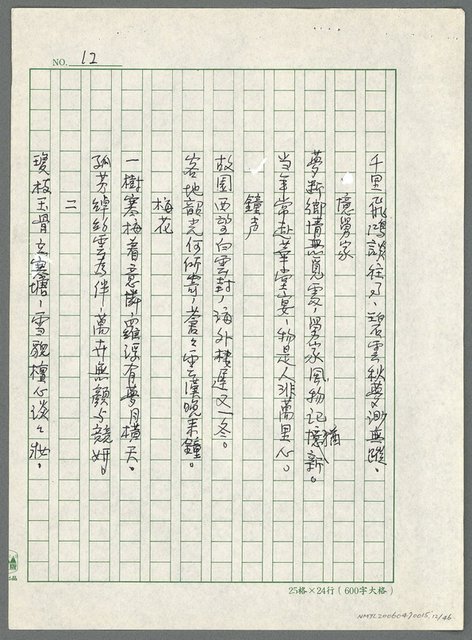 NO. 12
千里飛鴻談往了，碧雲秋夢渺無蹤。
憶舅家
夢斷鄉情無覓處，舅家風物記猶新。
當年常赴華堂宴，物是人非萬里心。
鐘声
故園西望白雲封，海外棲遲又一冬。
客地韶光何所寄，蒼々雲漢晚來鐘。
梅花
一樹寒梅着意憐，羅浮有夢月橫天。
孤芳綽約雪為伴，萬卉無顏与競妍。
二
瓊枝玉骨立寒塘，雪貌檀心淡々妝。
25格×24行(600字大格)
NMTL20060470015,12/46